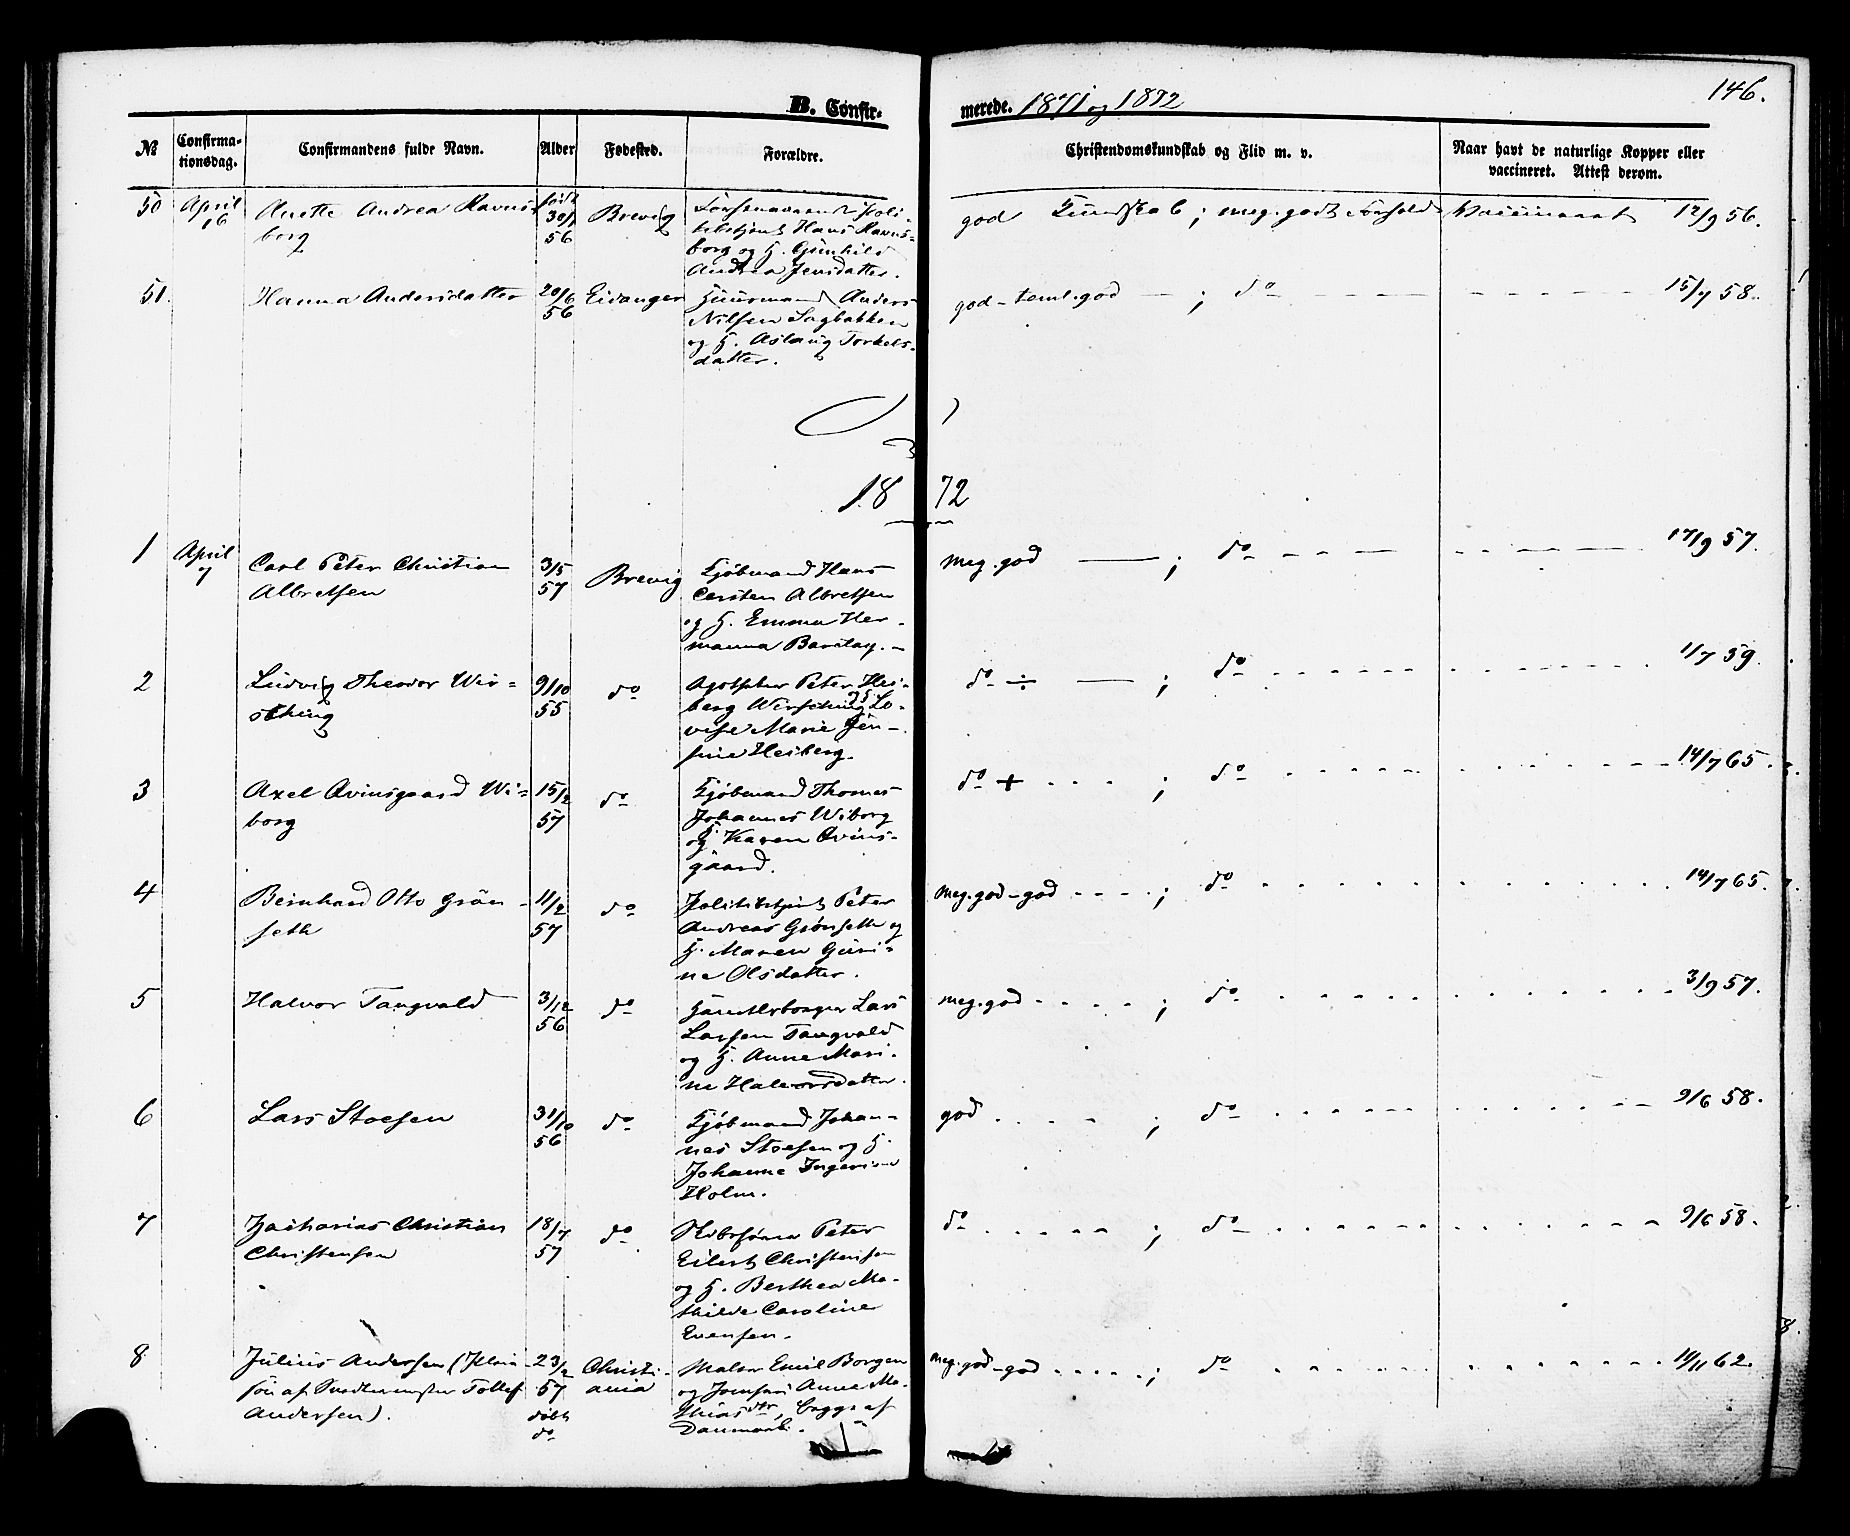 B. Confir-
merede. 1871 og 1872
146.
№
Confirma-
tionsdag.
Confirmandens fulde Navn.
Alder
Fødested.
Forældre.
Christendomskundskab og Flid m. v.
Naar havt de naturlige Kopper eller
vaccineret. Attest derom.
50 April 16
Anette Andrea Ravns-
borg
født
30/1
56
Brevig
Hans Ravns-
borg og H. Gunhild
Andrea Jensdatter.
god Kundskab; meg. godt Forhold
Vaccinerat 12/9 56.
51.
Hanna Andersdatter
20/6
56
Eidanger
Huusmand Anders
Nilsen Sagbakken
og H. Aslaug Torkels-
datter.
god - teml. god — ; do
15/7 58.
1872
1 April 7
Carl Peter Christian
Albretsen
3/5
57
Brevig
Kjøbmand Hans
Carsten Albretsen
og H. Emma Her-
manna Barclay. –
meg. god — ; do
17/9 57.
2
Ludvig Theodor Wir-
sching
9/10
55
do
Apotheker Peter Hei-
berg Wirsching og H. Lo-
vise Marie Jen-
sine Heiberg.
do ÷ — ; do
1/7 59.
3
Axel Qvinsgaard Wi-
borg
15/2
57
do
Kjøbmand Thomas
Johannes Wiborg
og H. Karen Qvins-
gaard.
do + ; do
14/7 65.
4
Bernhard Otto Grøn-
seth
11/2
57
do
Politibetjent Peter
Andreas Grønseth og
H. Maren Guri-
ne Olsdatter.
meg. god - god ; do
14/7 65.
5
Halvor Tangvald
3/12
56
do
Lars
Larsen Tangvald
og H. Anne Mari-
ne Halvorsdatter.
meg. god ; do
3/9 57.
6
Lars Stoesen
31/10
56
do
Kjøbmand Johan-
nes Stoesen og H.
Johanne
Holm.
god ; do
9/6 58.
7
Zacharias Christian
Christensen
18/7
57
do
Skibsfører Peter
Eilert Christensen
og H. Berthea Ma-
thilde Caroline
Evensen.
do ; do
9/6 58.
8
Julius Andersen (Pleie-
søn af Snedkermester Tollef
Andersen).
23/2
57
døbt
do
Christi-
ania
Maler Emil Borgen
og Jomfru Anne Ma-
thias dtr, begge af
Danmark.
meg. god - god ; do
11/11 62.